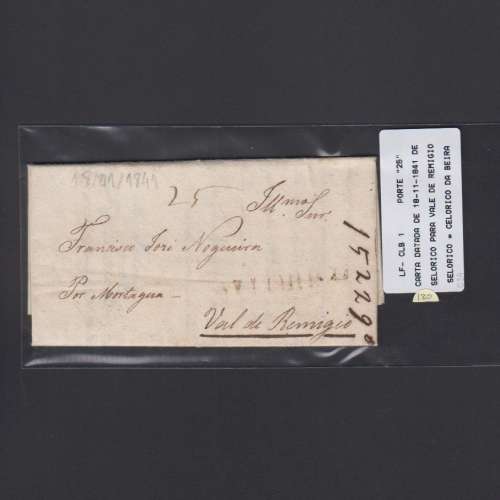 18/11/1841
25
Illmo Snr.
Francisco José Nogueira
Por Mortagua
Val de Remigio
LF- CLB 1 PORTE "25"
CARTA DATADA DE 18-11-1841 DE
SELORICO PARA VALE DE REMIGIO
SELORICO = CELORICO DA BEIRA
180